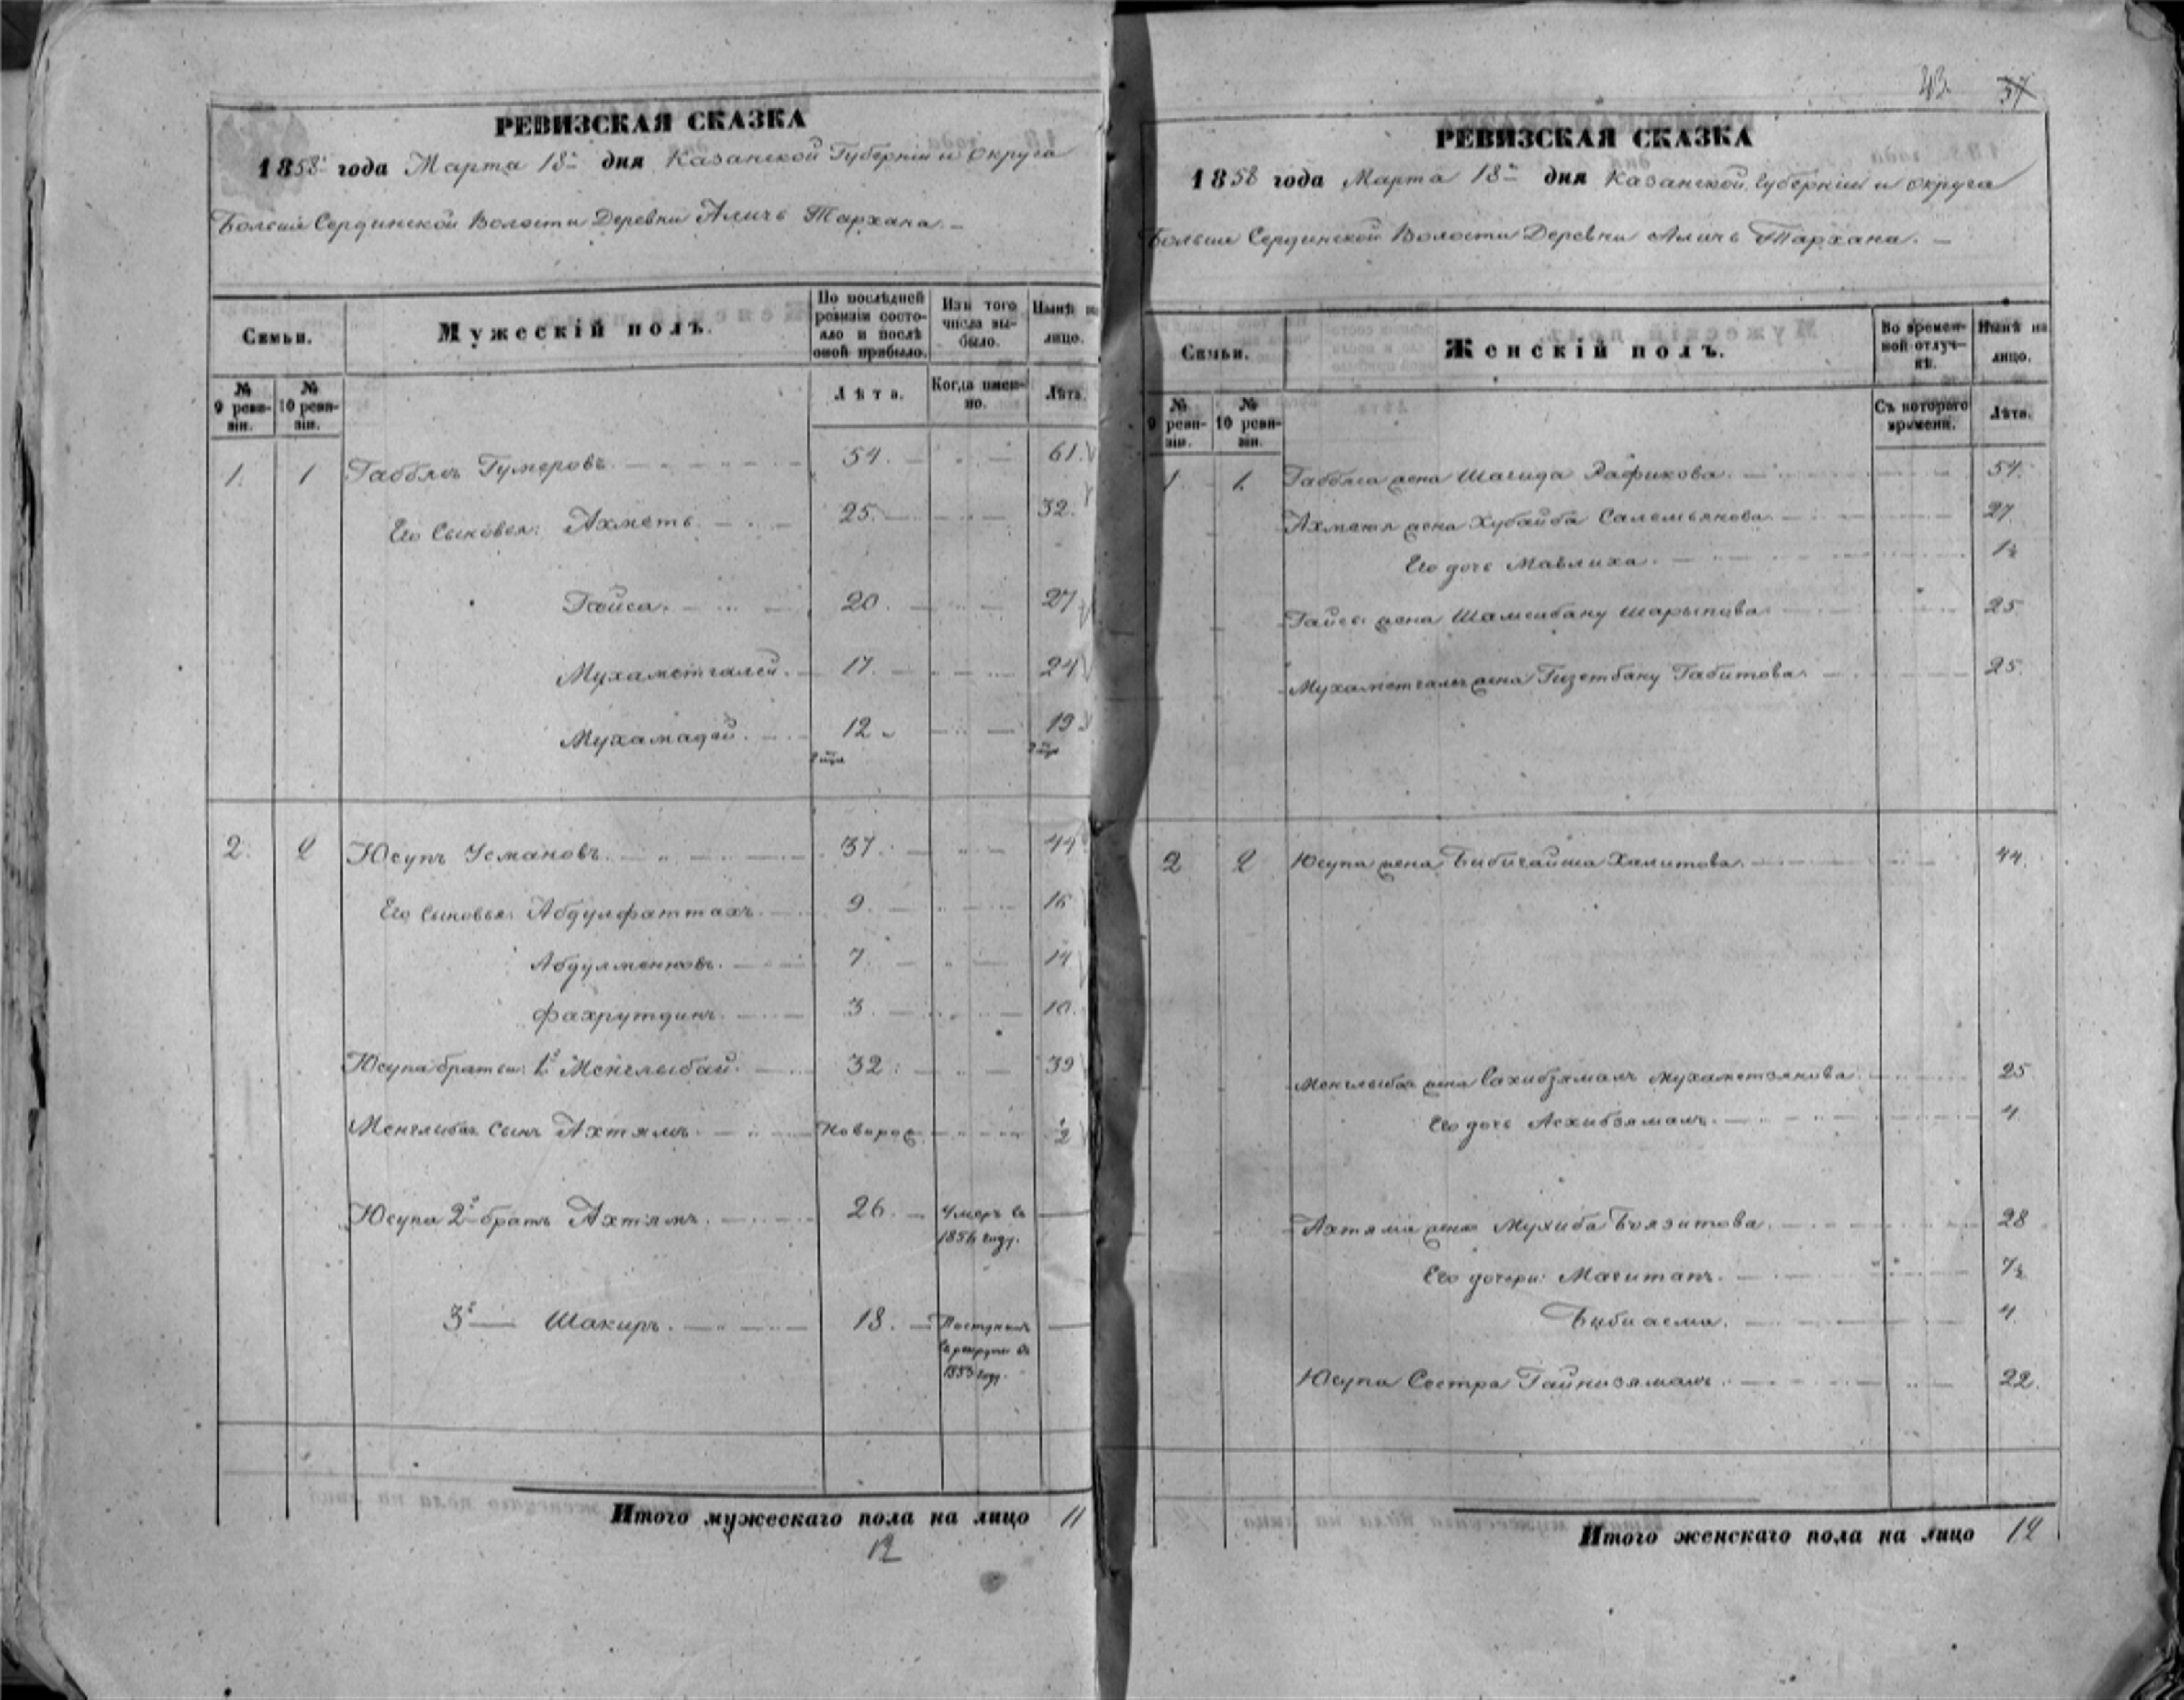 РЕВИЗСКАЯ СКАЗКА
1858 года Марта 18 дня Казанской Губерніи и округа
Больше Сердинской Волости Деревни Аличь Тархана.
Семьи.
Мужескій полъ.
По послѣдней ревизіи состояло и послѣ оной прибыло.
Изъ того числа выбыло.
Нынѣ на лицо.
№ 9 ревизіи.
№ 10 ревизіи.
Лѣта.
Когда именно.
Лѣта.
1. 1 Гумеровъ. 54. 61.
Его Сыновья: Ахметь 25. 32.
Гайса. 20. 27
Мухаметгалей. 17. 24
Мухамадей. 12 19
2. 2 Юсупъ Усмановъ. 37. 44
Его сыновья: Абдулфаттахъ. 9. 16
7. 14
Фахрутдинъ. 3. 10.
Юсупа братья: 1й Менглыбай. 32. 39
Менглыбая сынъ Ахтямъ. Новорож ½
Юсупа 2й братъ Ахтямъ. 26. Умеръ въ
1856 году.
3й — Шакиръ. 18. Поступилъ
въ рекруты въ
1853 году.
Итого мужескаго пола на лицо 11
12
43 37
РЕВИЗСКАЯ СКАЗКА
1858 года Марта 18 дня Казанской Губерніи и округа
Больше Сердинской Волости Деревни Аличь Тархана.
Семьи.
Женскій полъ.
Во временной отлучкѣ.
Нынѣ на лицо.
№ 9 ревизіи.
№ 10 ревизіи.
Съ котораго времени.
Лѣта.
1. 1. жена Шагида Рафикова. 54.
Ахметя жена Хубайба Салемьянова. 27.
Его дочь Мавлиха. 1½
Гайсы жена Шамсибану Шарыпова 25
Мухаметгалея жена Гизетбану Габитова. 25.
2 2 Юсупа жена Бибигайша Халитова. 44.
Менглыбая жена Сахибзямалъ Мухаметзянова. 25
Его дочь Асхибзямалъ. 4.
Ахтяма жена Мухиба Боязитова. 28
Его дочери: Магитапъ. 7½
Бибиасма. 4.
Юсупа Сестра Гайнизямалъ. 22.
Итого женскаго пола на лицо 12